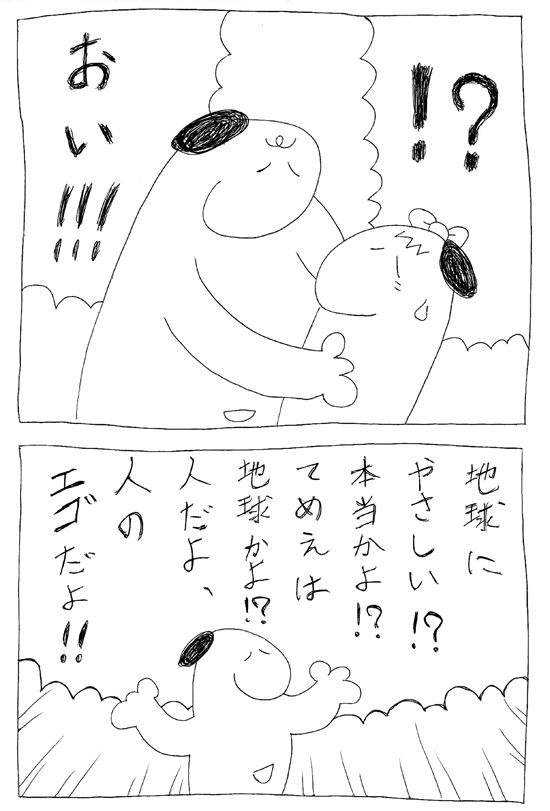 !?
おい!!!
地球に
やさしい!?
本当かよ!?
てめえは
地球かよ!?
人だよ、
人の
エゴだよ!!